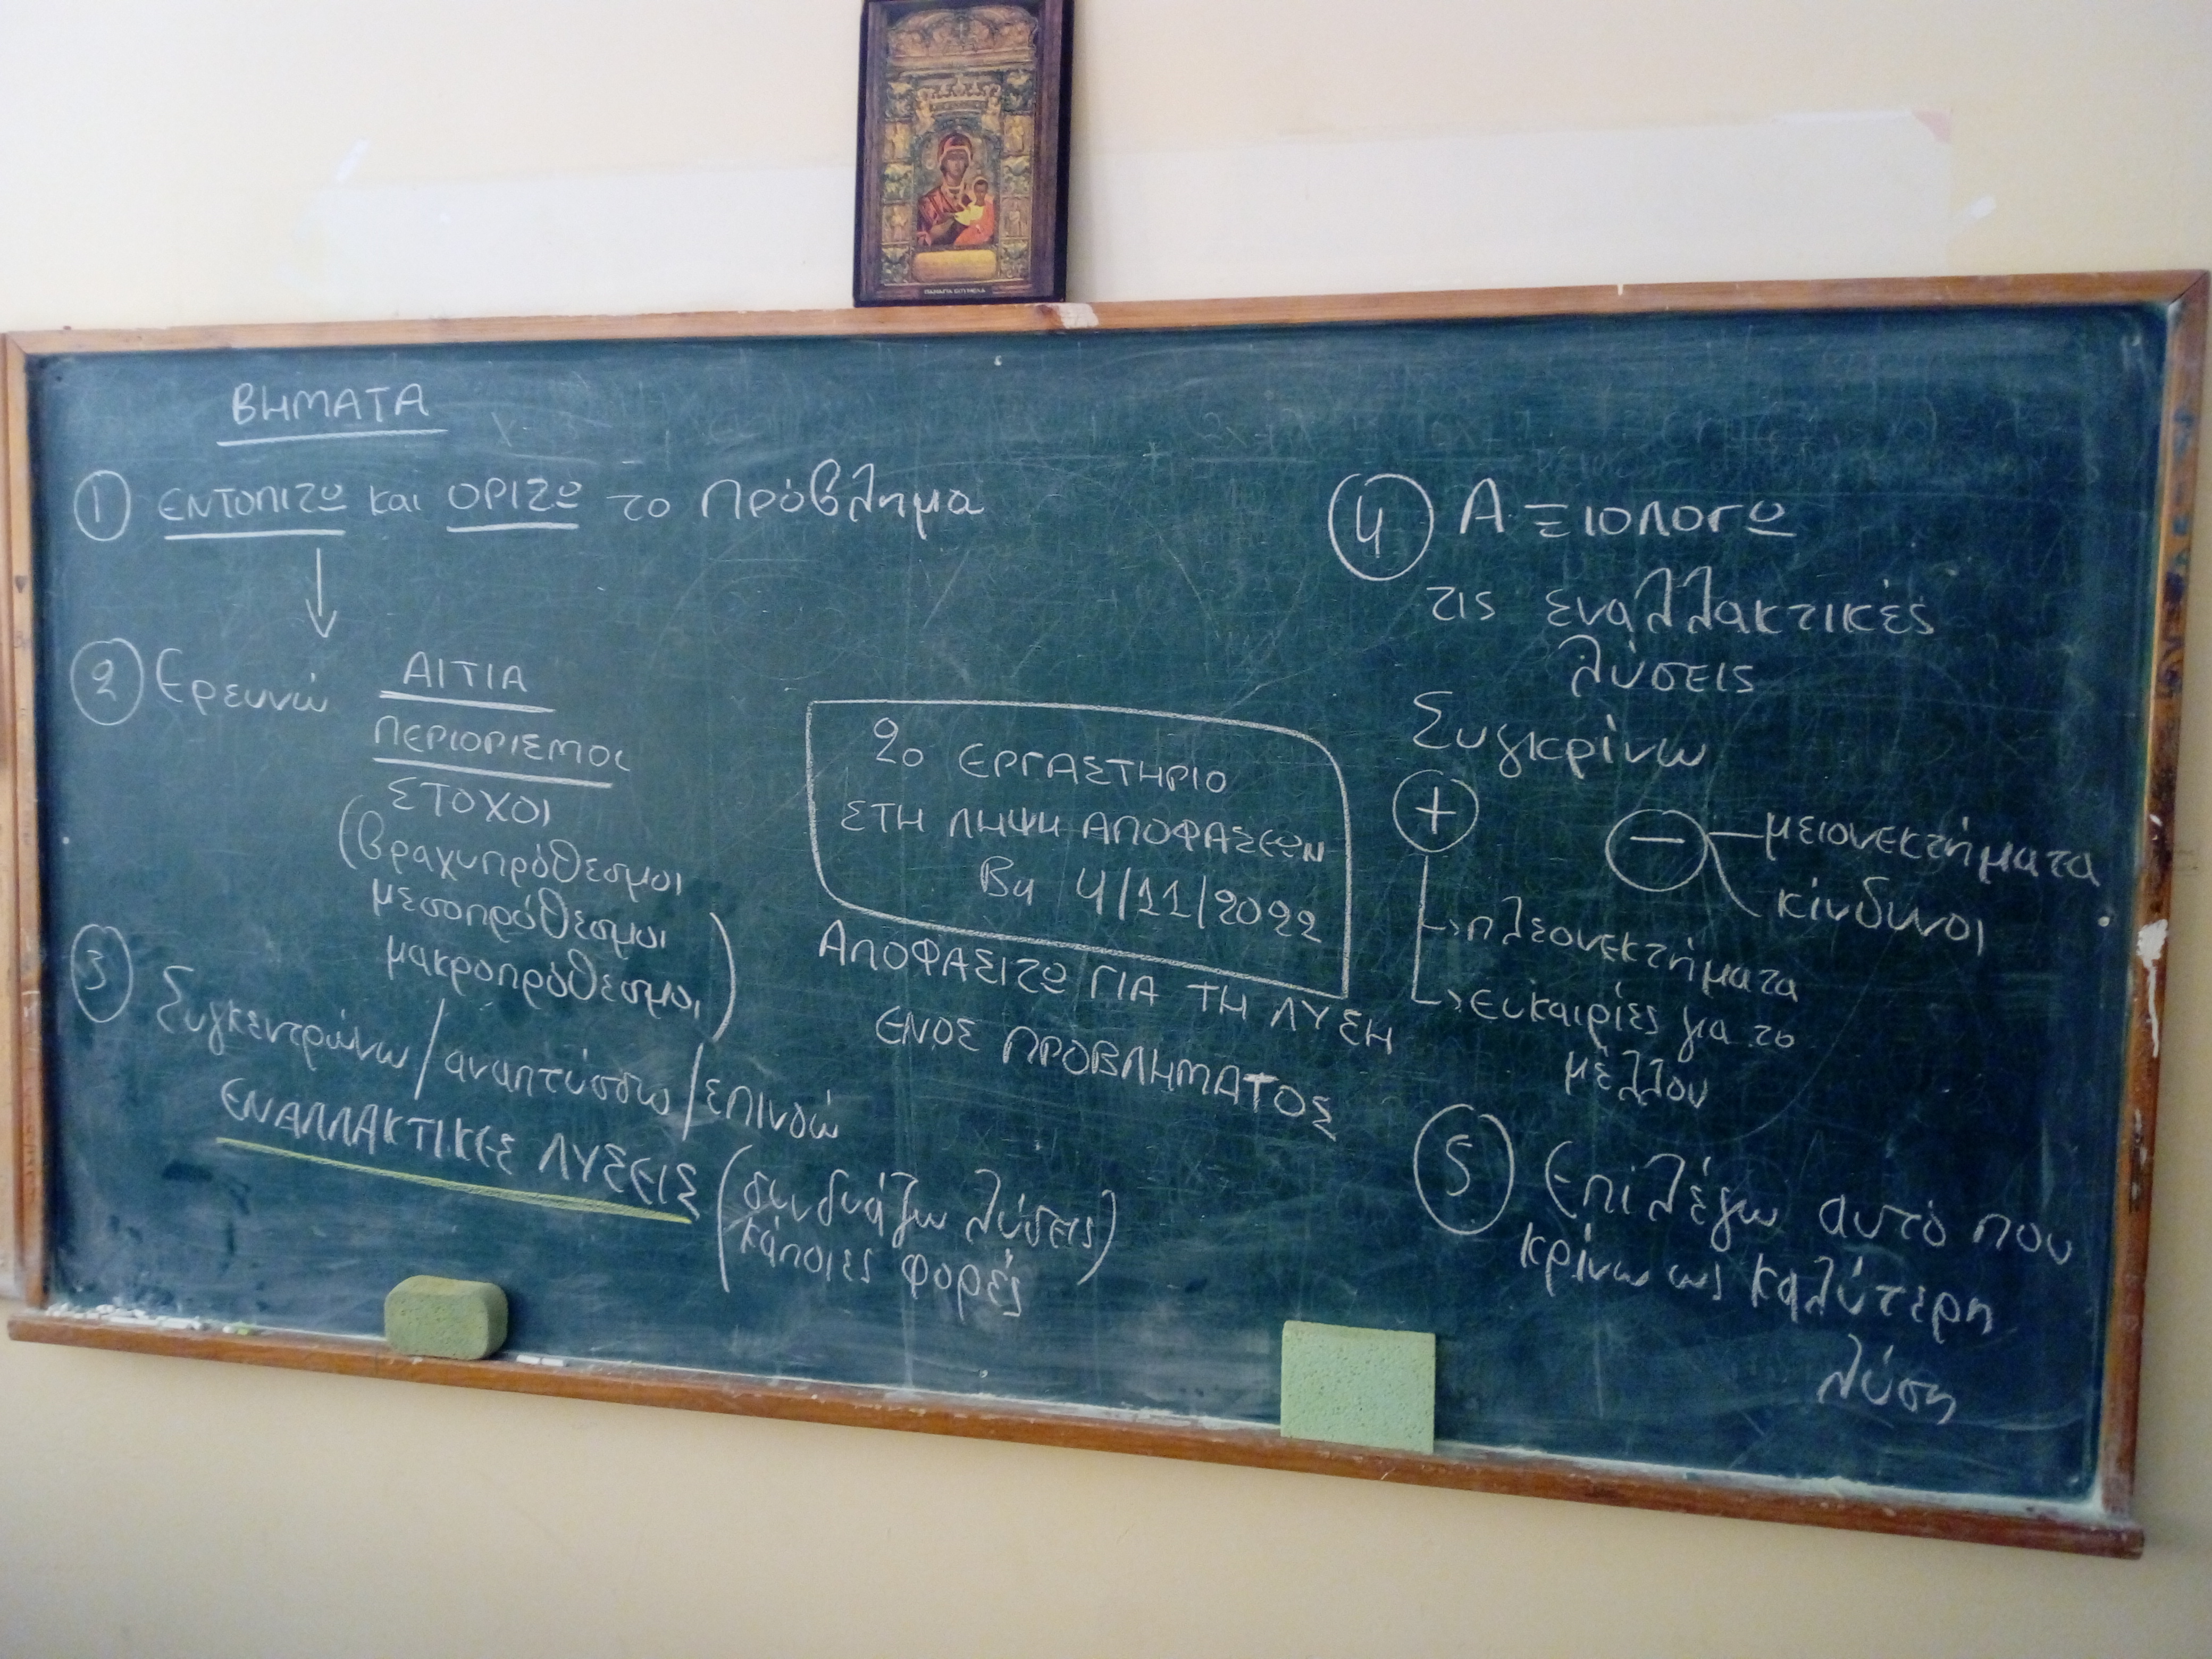 ΒΗΜΑΤΑ
1 ΕΝΤΟΠΙΖΩ και ΟΡΙΖΩ το Πρόβλημα
2 Ερευνώ ΑΙΤΙΑ
ΠΕΡΙΟΡΙΣΜΟΙ
ΣΤΟΧΟΙ
(βραχυπρόθεσμοι
μεσοπρόθεσμοι
μακροπρόθεσμοι)
3 Συγκεντρώνω / αναπτύσσω / επινοώ
ΕΝΑΛΛΑΚΤΙΚΕΣ ΛΥΣΕΙΣ (συνδυάζω λύσεις
κάποιες φορές)
2ο ΕΡΓΑΣΤΗΡΙΟ
ΣΤΗ ΛΗΨΗ ΑΠΟΦΑΣΕΩΝ
Β4 4/11/2022
ΑΠΟΦΑΣΙΖΩ ΓΙΑ ΤΗ ΛΥΣΗ
ΕΝΟΣ ΠΡΟΒΛΗΜΑΤΟΣ
4 ΑΞΙΟΛΟΓΩ
τις εναλλακτικές
λύσεις
Συγκρίνω
+ − μειονεκτήματα
κίνδυνοι
πλεονεκτήματα
ευκαιρίες για το
μέλλον
5 Επιλέγω αυτό που
κρίνω ως καλύτερη
λύση